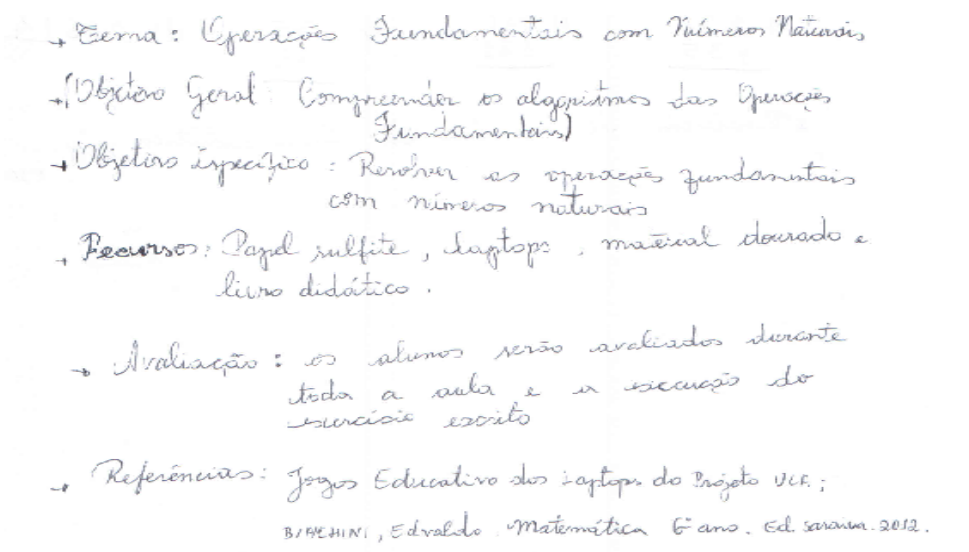 → Tema: Operações Fundamentais com Números Naturais
→ (Objetivo Geral Compreender os algoritmos das Operações
Fundamentais)
→ Objetivo específico: Resolver as operações fundamentais
com números naturais
→ Recursos: Papel sulfite, laptops, material dourado e
livro didático.
→ Avaliação: os alunos serão avaliados durante
toda a aula e a execução do
exercício escrito
→ Referências: Jogos Educativo dos laptops do Projeto UCA;
BIANCHINI, Edvaldo. Matemática 6º ano. Ed. Saraiva. 2012.